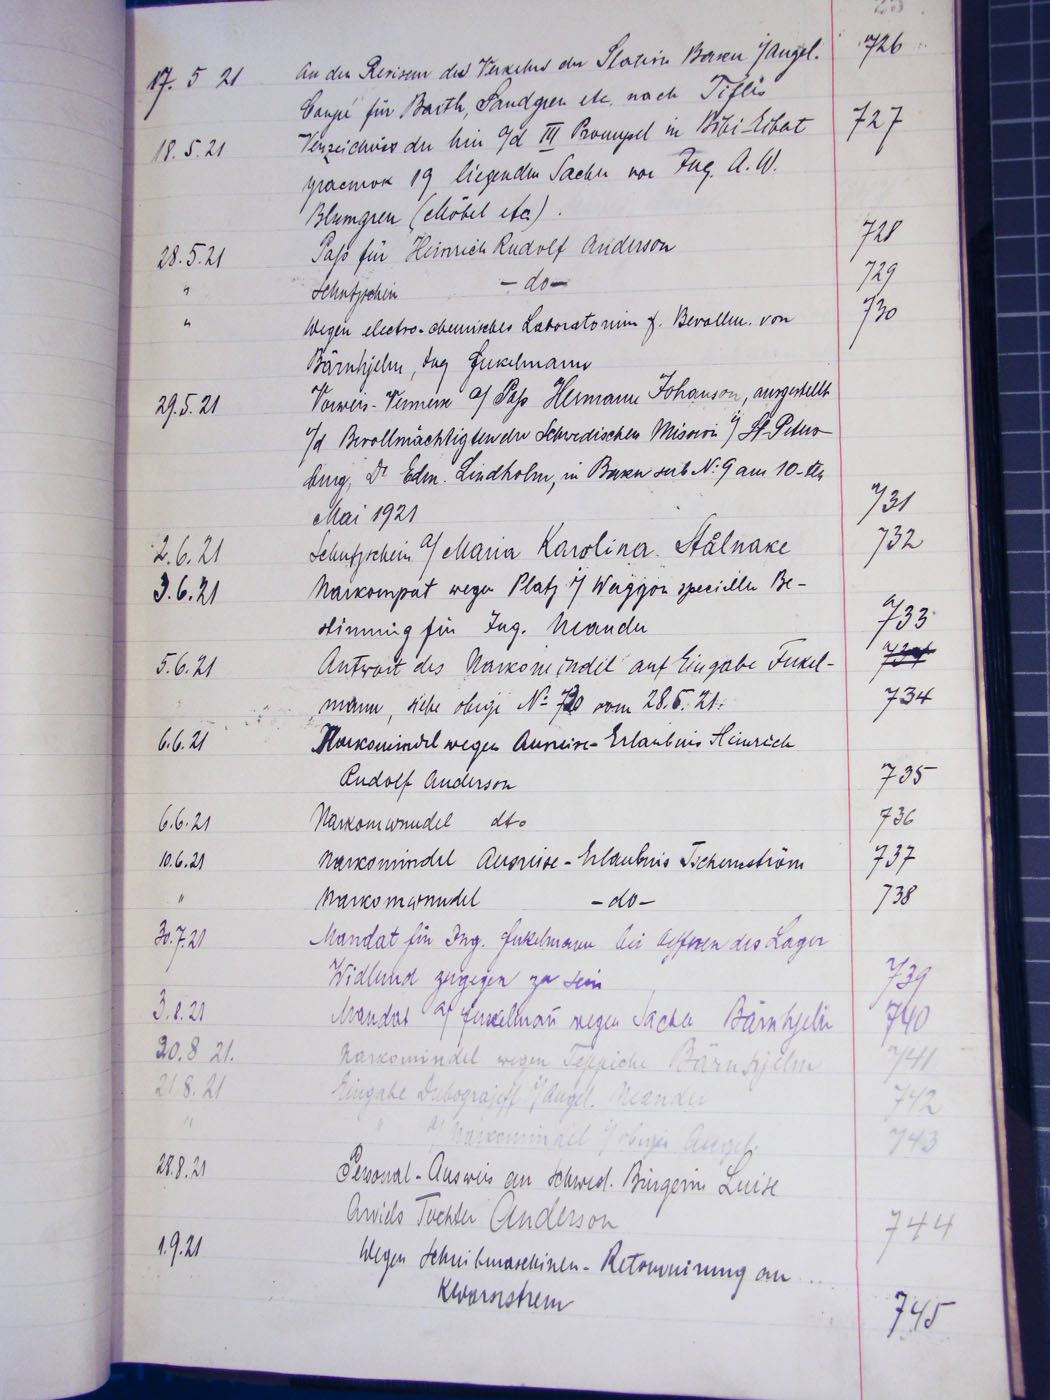 23
17. 5 21 An den Reviseur des Verkehrs der Station Baku i/Angel. 726
Coupé für Barth, Sandgren etc. nach Tiflis
18.5.21 Verzeichniss der hin a/d III Promysel in Bibi-Eibat 727
участок 19 liegenden Sachen von Ing. A. W.
Blumgren (Möbel etc.).
28.5.21 Paß für Heinrich Rudolf Anderson 728
" Schutzschein -do- 729
" Wegen electro-chemisches Laboratorium f. Bevollm. von 730
Bärnhjelm, Ing Finkelmann
29.5.21 Vorweis-Vermerk a/ Paß Hermann Johanson, ausgestellt
v/d Bevollmächtigten der Schwedischen Mission i/ St-Peters-
burg, Dr Edm. Lindholm, in Baku sub №9 am 10-ten
Mai 1921 731
2.6.21 Schutzschein a/ Maria Karolina Stålnake 732
3.6.21 Narkomput wegen Platz i/ Waggon specieller Be-
stimmung für Ing. Neander 733
5.6.21 Antwort des Narkomindel auf Eingabe Finkel- 734
mann, siehe obige № 730 vom 28.5.21. 734
6.6.21 Narkomindel wegen Ausreise-Erlaubnis Heinrich
Rudolf Anderson 735
6.6.21 Narkomwnudel dto 736
10.6.21 Narkomindel Ausreise-Erlaubnis Tschernström 737
" Narkomwnudel -do- 738
30.7.21 Mandat für Ing. Finkelmann bei Oeffnen des Lager
Widlund zugegen zu sein 739
3.8.21 Mandat a/ Finkelman̄ wegen Sachen Bärnhjelm 740
20.8 21. Narkomindel wegen Teppiche Bärnhjelm 741
21.8.21 Eingabe i/Angel. Neander 742
" " a/ Narkomindel i/obiger Angel. 743
28.8.21 Personal-Ausweis an schwed. Bürgerin Luise
Arvids Tochter Anderson 744
1.9.21 Wegen Schreibmaschinen-Retournirung an
Kwarnstrem 745